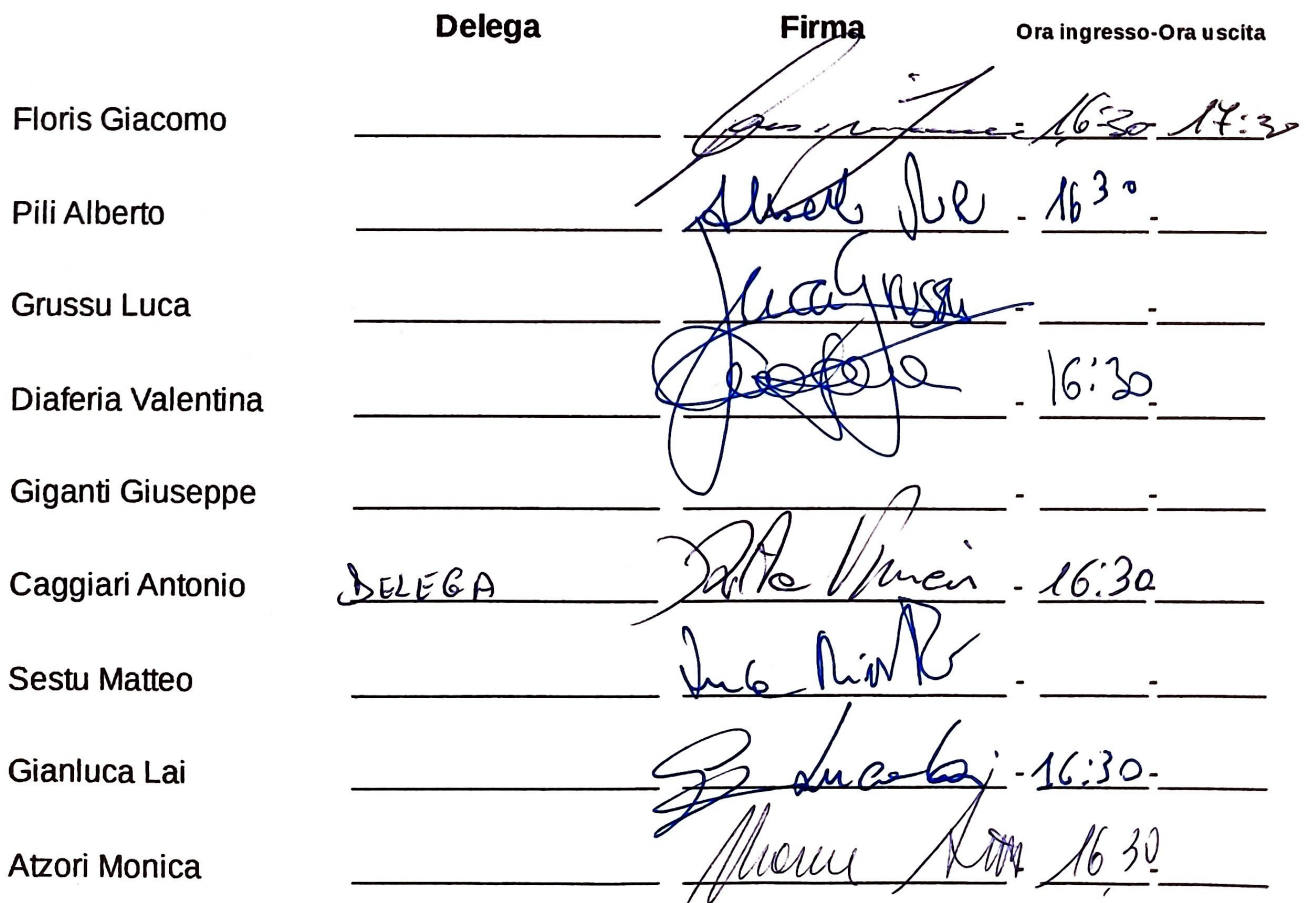 Delega Firma Ora ingresso-Ora uscita
Floris Giacomo - 16:30 - 17:30
Pili Alberto Alberto Pili - 16 30 -
Grussu Luca Luca Grussu - -
Diaferia Valentina - 16:30 -
Giganti Giuseppe - -
Caggiari Antonio DELEGA - 16:30 -
Sestu Matteo - -
Gianluca Lai Gianluca Lai - 16:30 -
Atzori Monica Monica 16 30 -